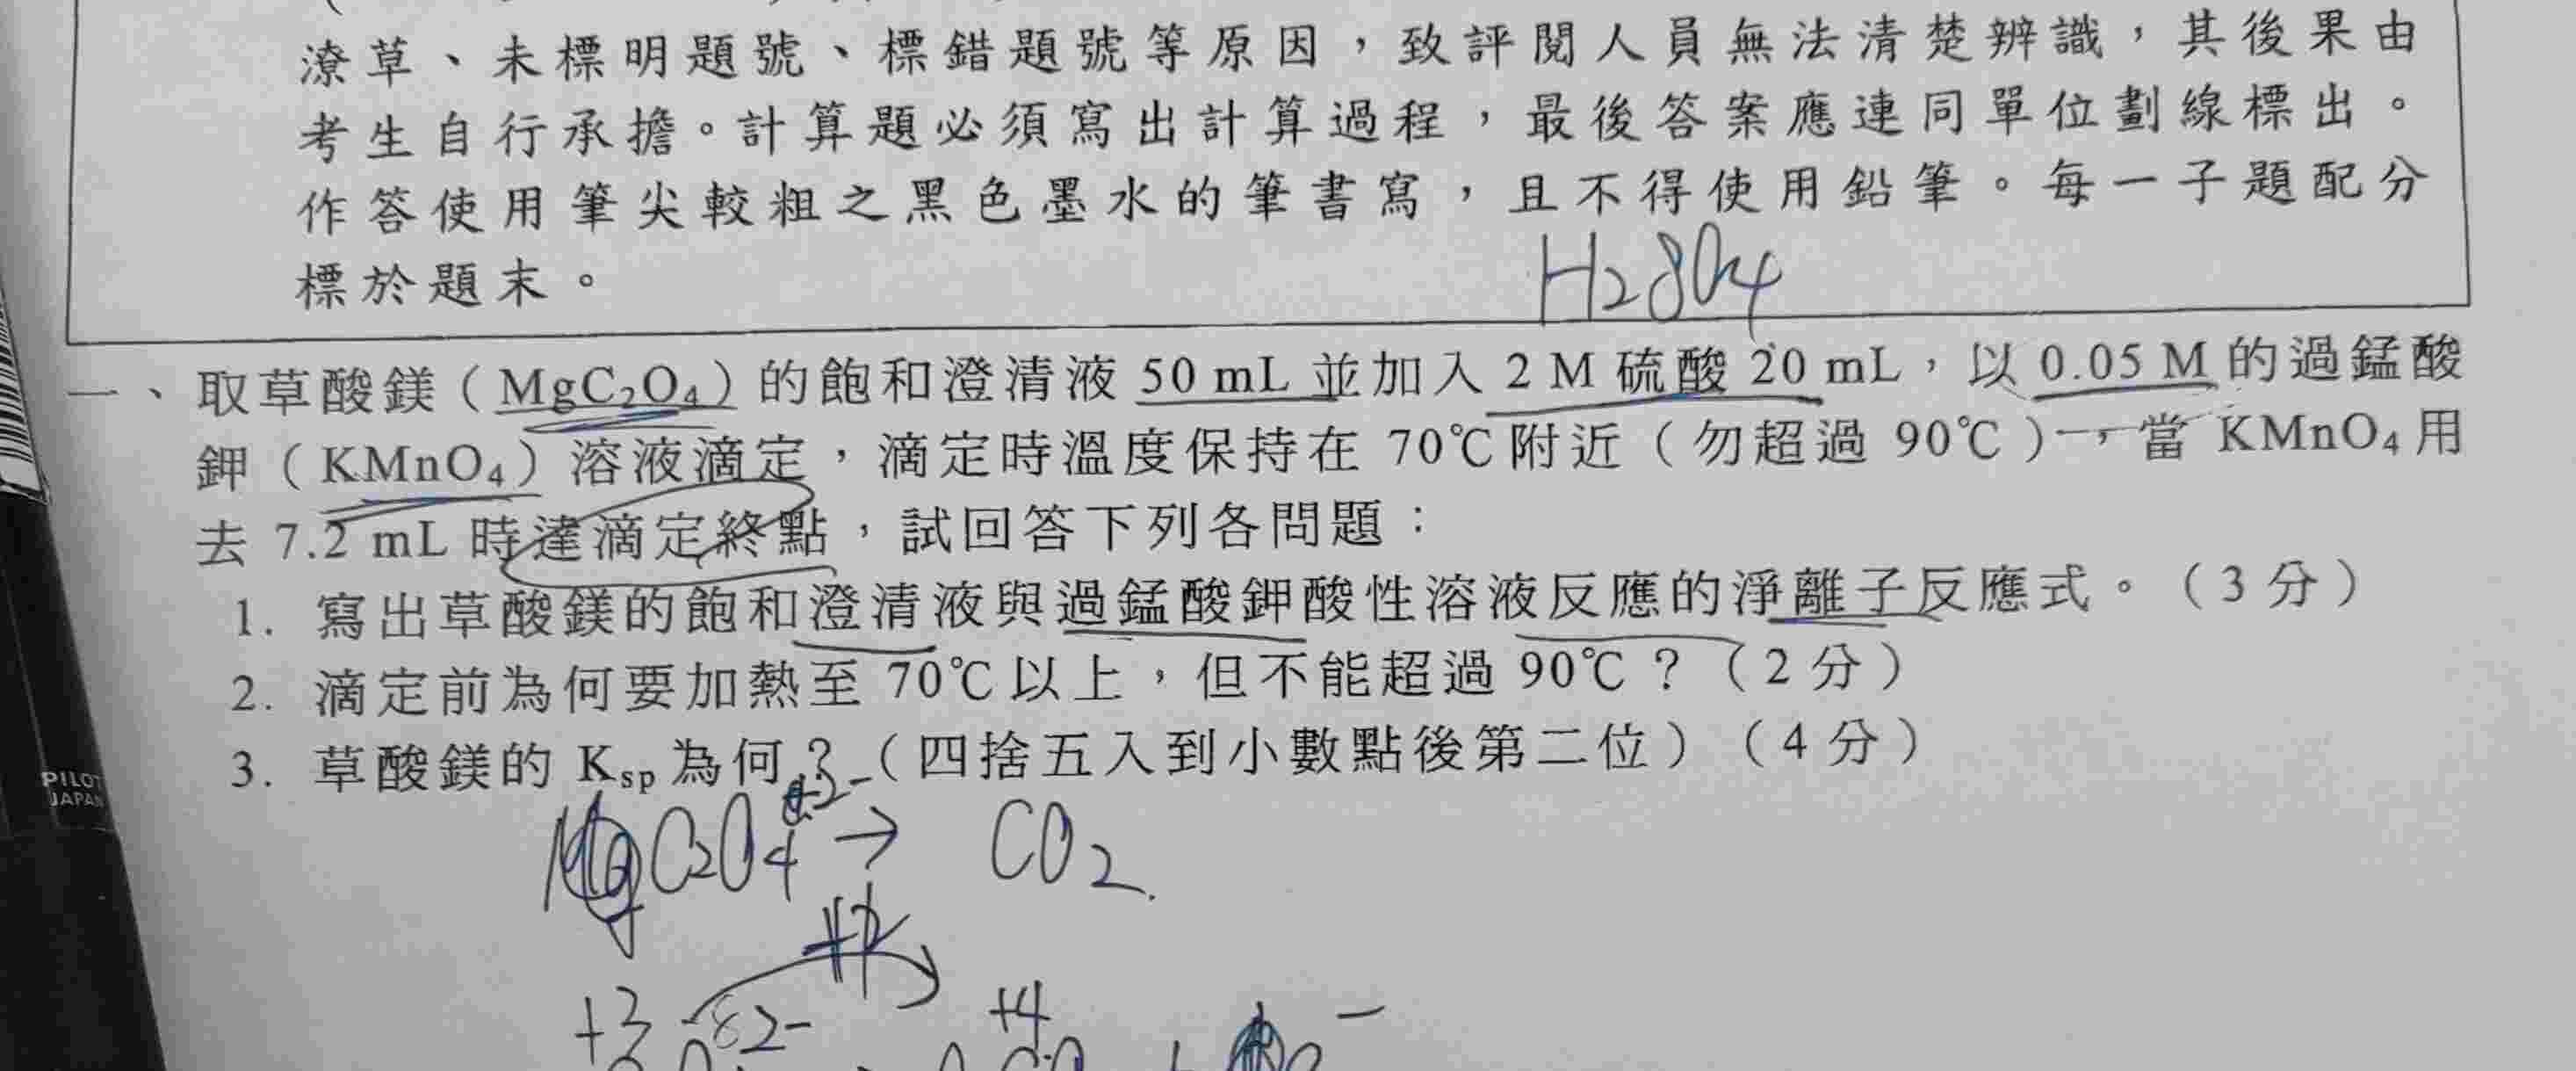 潦草、未標明題號、標錯題號等原因，致評閱人員無法清楚辨識，其後果由
考生自行承擔。計算題必須寫出計算過程，最後答案應連同單位劃線標出。
作答使用筆尖較粗之黑色墨水的筆書寫，且不得使用鉛筆。每一子題配分
標於題末。
H2SO4
一、取草酸鎂（MgC₂O₄）的飽和澄清液 50 mL 並加入 2 M 硫酸 20 mL，以 0.05 M 的過錳酸
鉀（KMnO₄）溶液滴定，滴定時溫度保持在 70℃附近（勿超過 90℃），當 KMnO₄用
去 7.2 mL 時達滴定終點，試回答下列各問題：
1. 寫出草酸鎂的飽和澄清液與過錳酸鉀酸性溶液反應的淨離子反應式。（3 分）
2. 滴定前為何要加熱至 70℃以上，但不能超過 90℃？（2 分）
3. 草酸鎂的 Ksp 為何？（四捨五入到小數點後第二位）（4 分）
PILOT
JAPAN
MgC2O4 2- → CO2
+3 2- +4